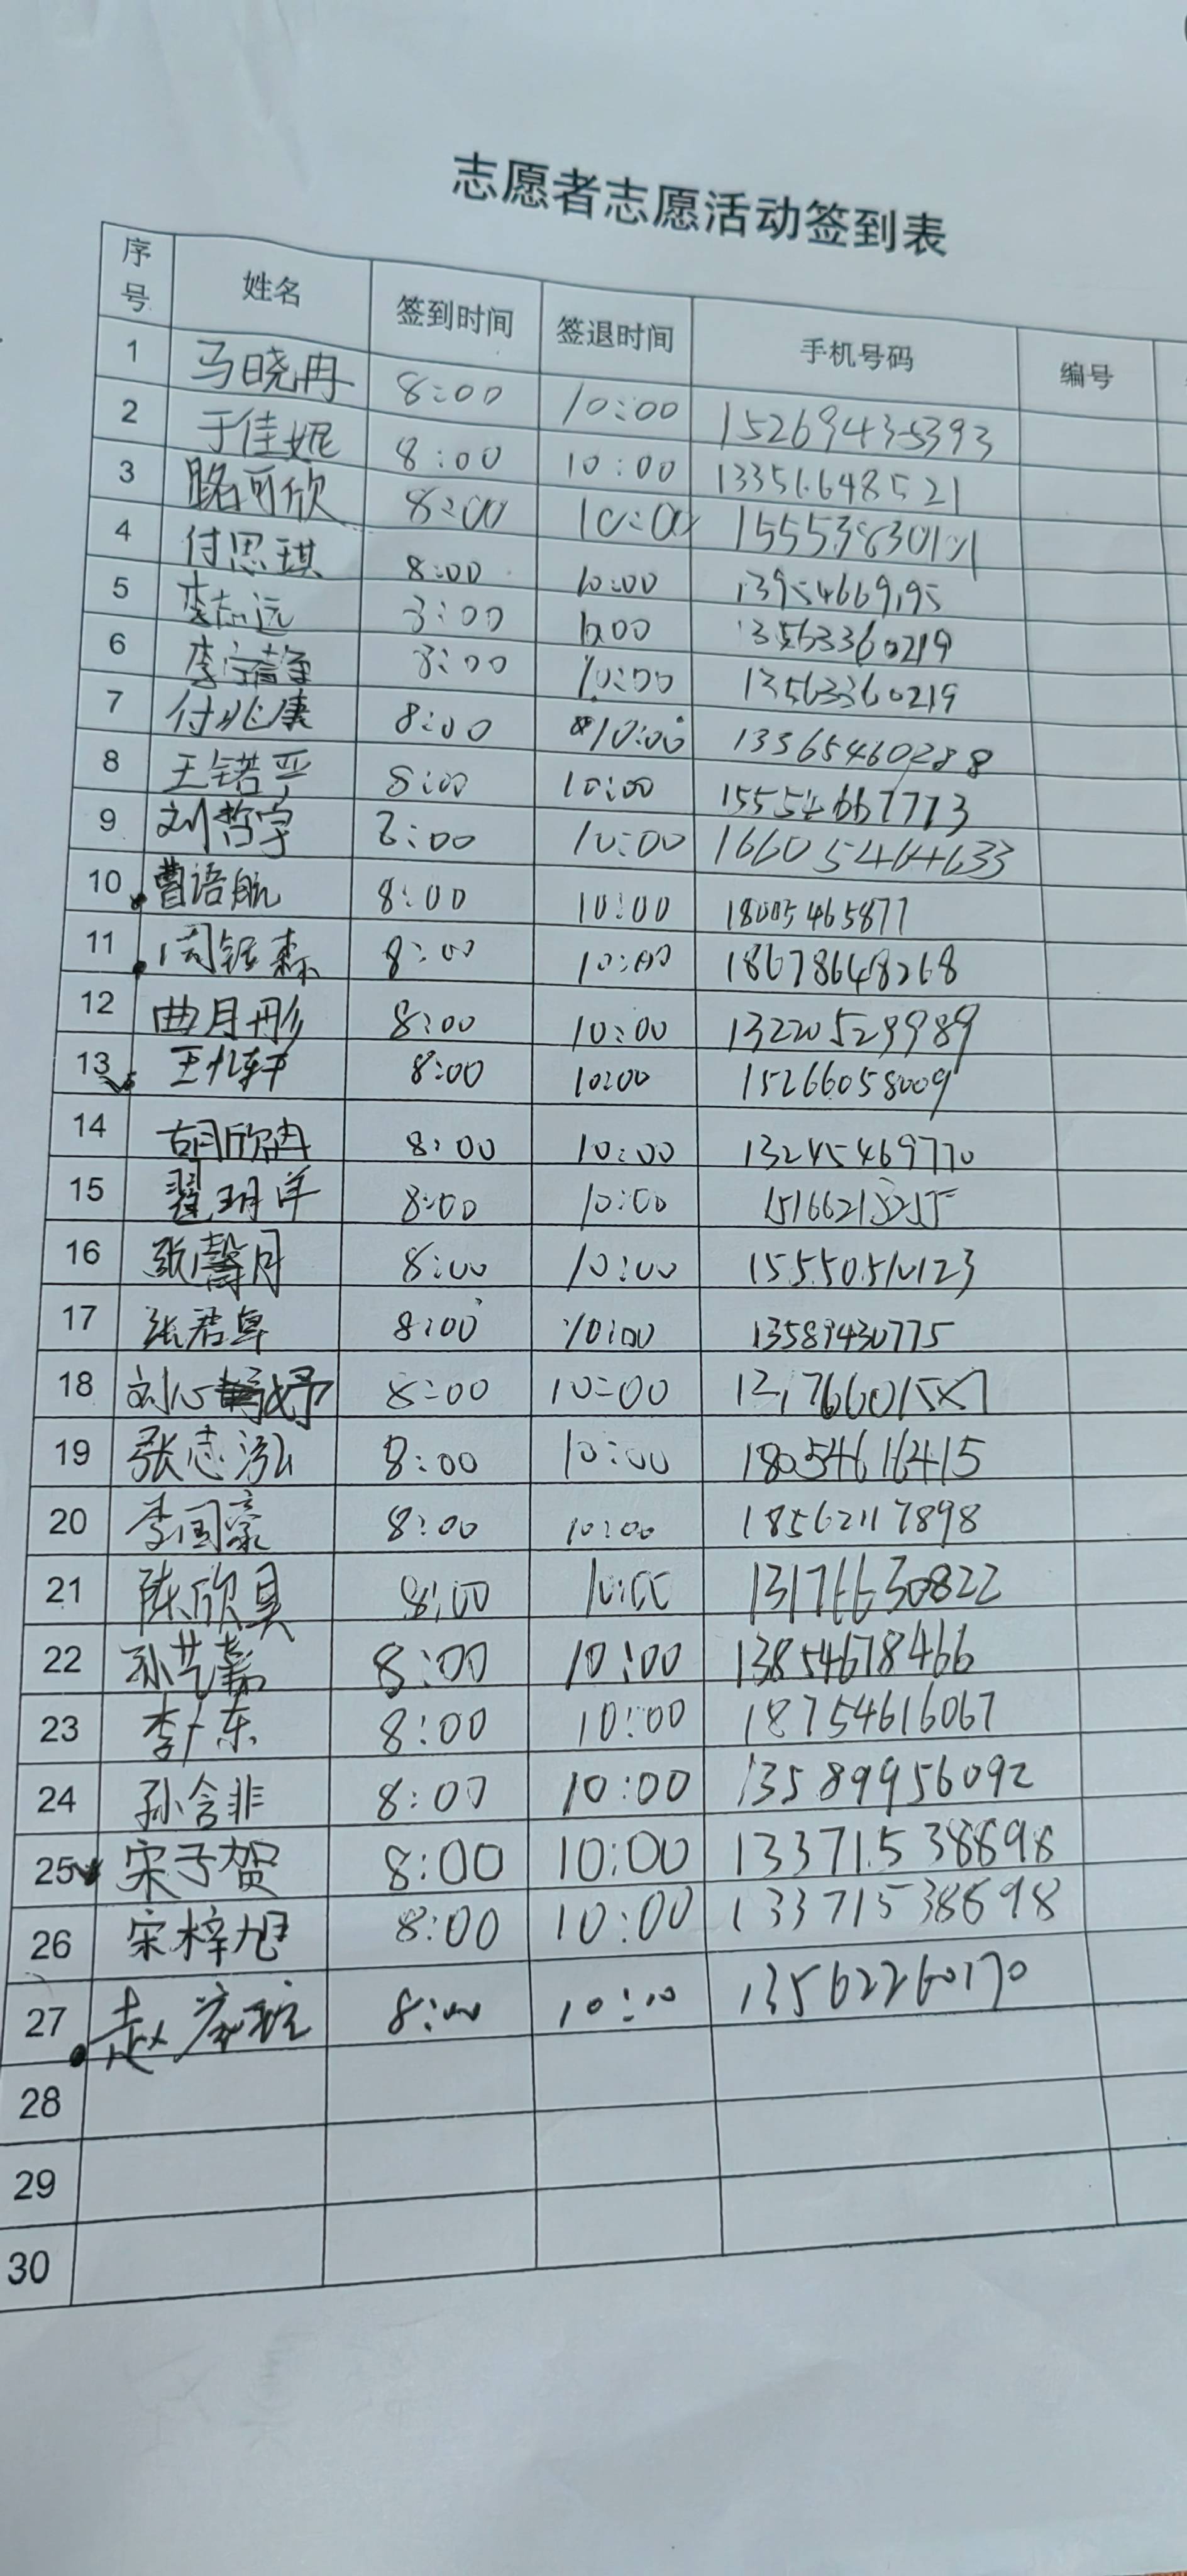 志愿者志愿活动签到表
序号 姓名 签到时间 签退时间 手机号码 编号
1 马晓冉 8:00 10:00 15269435393
2 于佳妮 8:00 10:00 13351648521
3 路可欣 8:00 10:00
4 付思琪 8:00 10:00 13954669195
5 李志远 8:00 10:00 13563360219
6 李宁静 8:00 10:00 13563360219
7 付兆康 8:00 10:00 13365460288
8 王锘严 8:00 10:00 15554667773
9 刘哲宇 8:00 10:00 16605464633
10 曹语航 8:00 10:00 18005465877
11 周钰森 8:00 10:00 18678648268
12 曲月彤 8:00 10:00 13220529989
13 王九轩 8:00 10:00 15266058009
14 胡欣冉 8:00 10:00 13245469770
15 翟玥洋 8:00 10:00
16 张馨月 8:00 10:00 15550510123
17 张君卓 8:00 10:00 13589430775
18 刘心妤 8:00 10:00
19 张志泓 8:00 10:00 18054616415
20 李国豪 8:00 10:00 18562117898
21 陈欣具 8:00 10:00 13176630822
22 孙艺嘉 8:00 10:00 13854678466
23 李广东 8:00 10:00 18754616067
24 孙含非 8:00 10:00 13589956092
25 宋子贺 8:00 10:00 13371538698
26 宋梓旭 8:00 10:00 13371538698
27 赵 8:00 10:00 13562260170
28
29
30